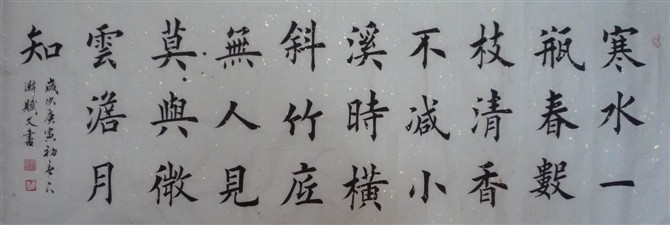 寒水一
瓶春數
枝清香
不减小
溪時橫
斜竹底
無人見
莫與微
雲澹月
知
歲次庚寅初春
文書